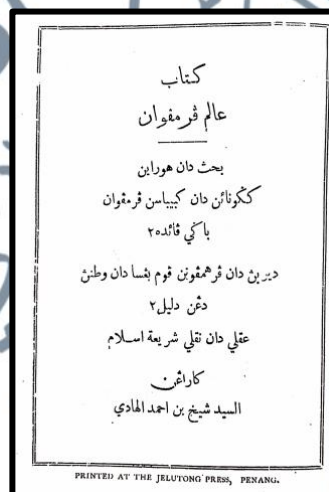 کتاب
عالم ڤرمڤوان
بحث دان هوراين
کݢونائن دان کبيباسن ڤرمڤوان
باݢي فائده٢
ديرين دان ڤرهمڤونن قوم بڠسا دان وطنڽ
دڠن دليل٢
عقلي دان نقلي شريعة اسلام
کاراڠن
السيد شيخ بن احمد الهادي
PRINTED AT THE JELUTONG PRESS, PENANG.